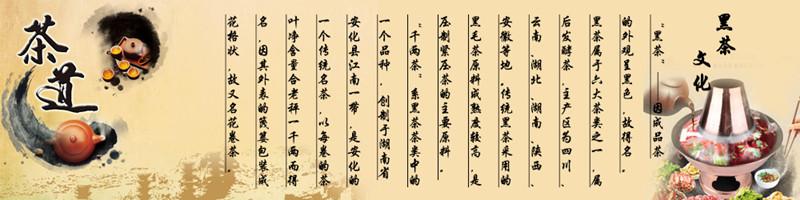 黑茶
文化
“黑茶”——因成品茶
的外观呈黑色，故得名。
黑茶属于六大茶类之一，属
后发酵茶，主产区为四川、
云南、湖北、湖南、陕西、
安徽等地，传统黑茶采用的
黑毛茶原料成熟度较高，是
压制紧压茶的主要原料。
“千两茶”系黑茶茶类中的
一个品种，创制于湖南省
安化县江南一带，是安化的
一个传统名茶，以每卷的茶
叶净含量合老秤一千两而得
名，因其外表的篾篓包装成
花格状，故又名花卷茶。
茶道